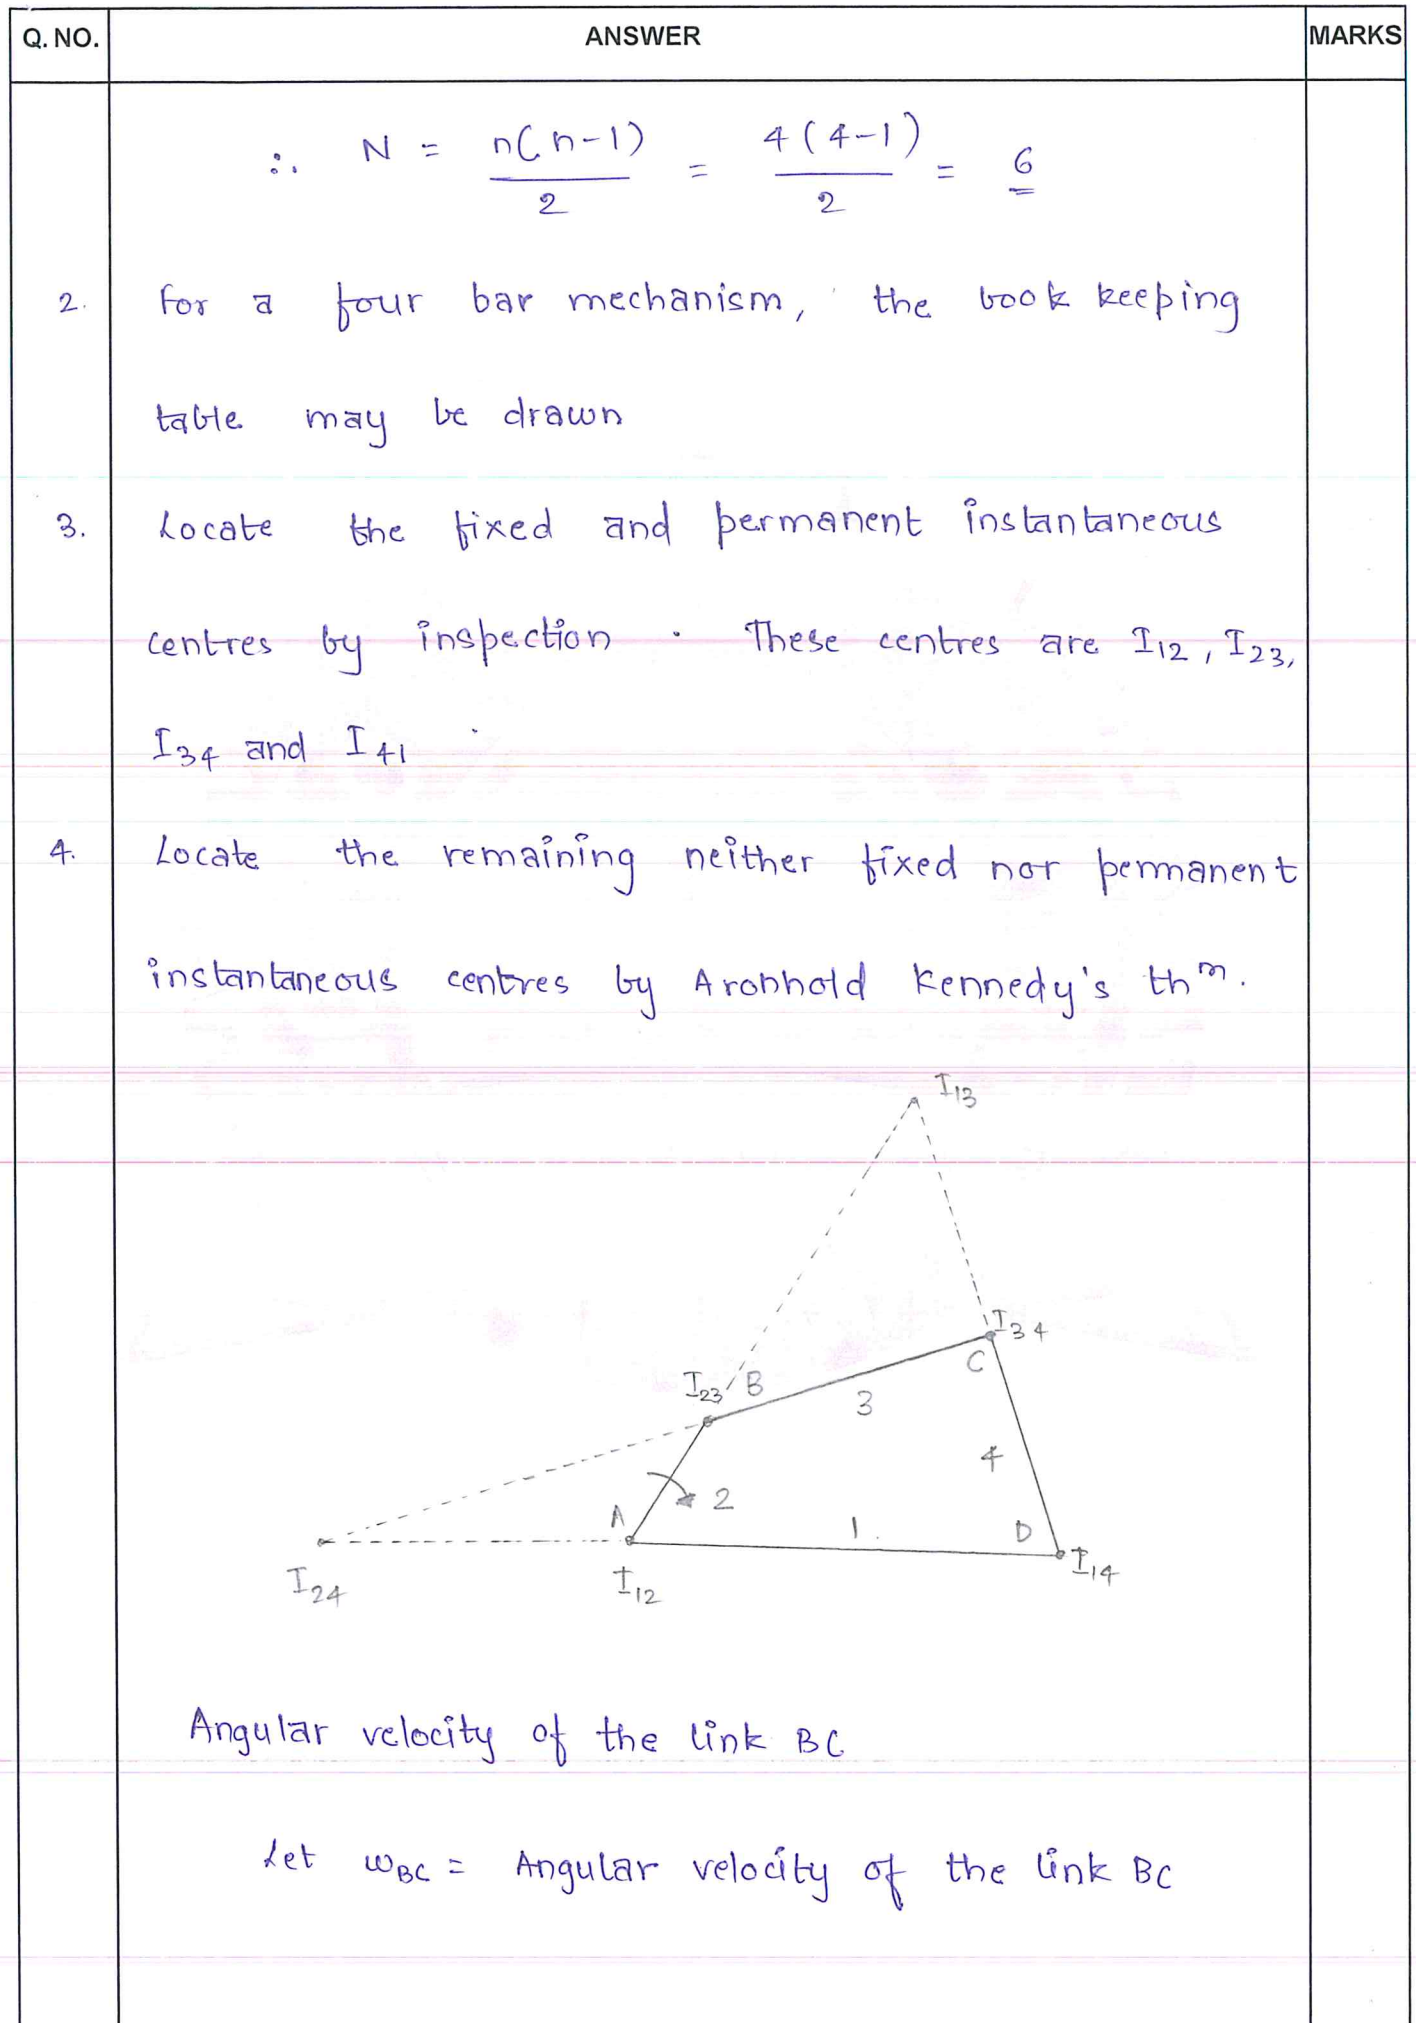 Q. NO. ANSWER MARKS
∴ N = n(n-1)/2 = 4(4-1)/2 = 6
2. For a four bar mechanism, the book keeping
table may be drawn
3. Locate the fixed and permanent instantaneous
centres by inspection. These centres are I12, I23,
I34 and I41
4. Locate the remaining neither fixed nor permanent
instantaneous centres by Aronhold Kennedy's thm.
I13
I34
C
I23 B
3
4
2
A
1.
D
I14
I24
I12
Angular velocity of the link BC
Let ωBC = Angular velocity of the link BC